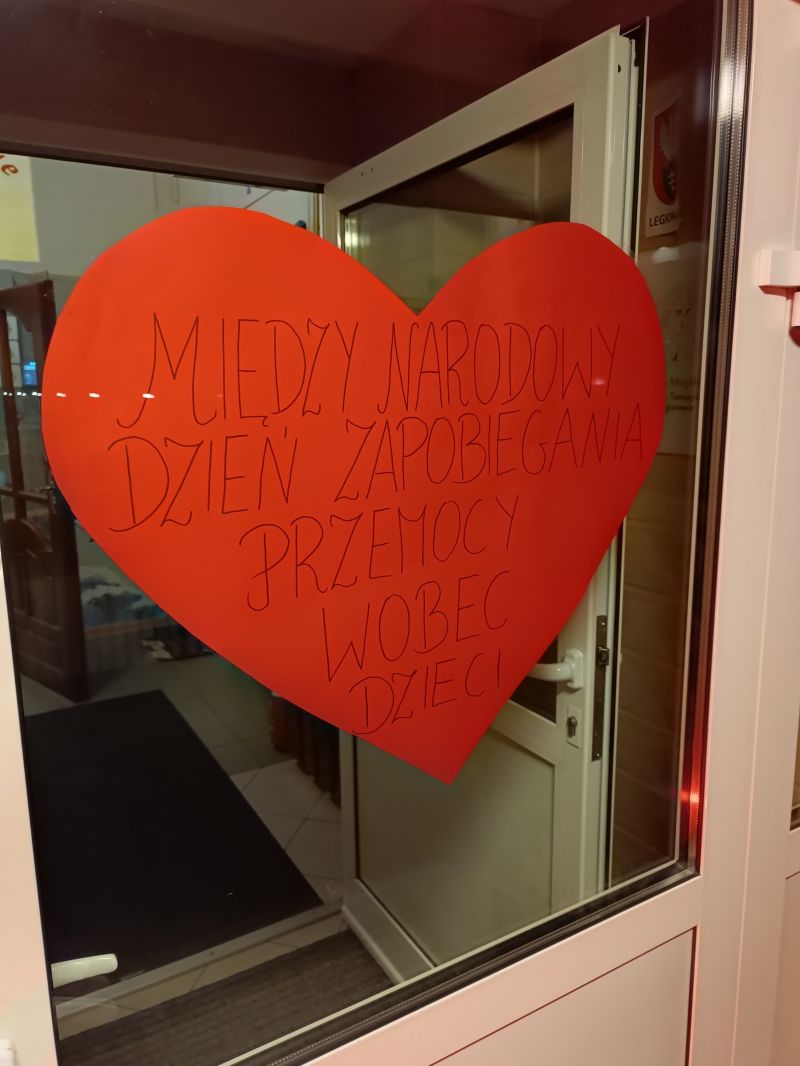 MIĘDZY NARODOWY
DZIEŃ ZAPOBIEGANIA
PRZEMOCY
WOBEC
DZIECI